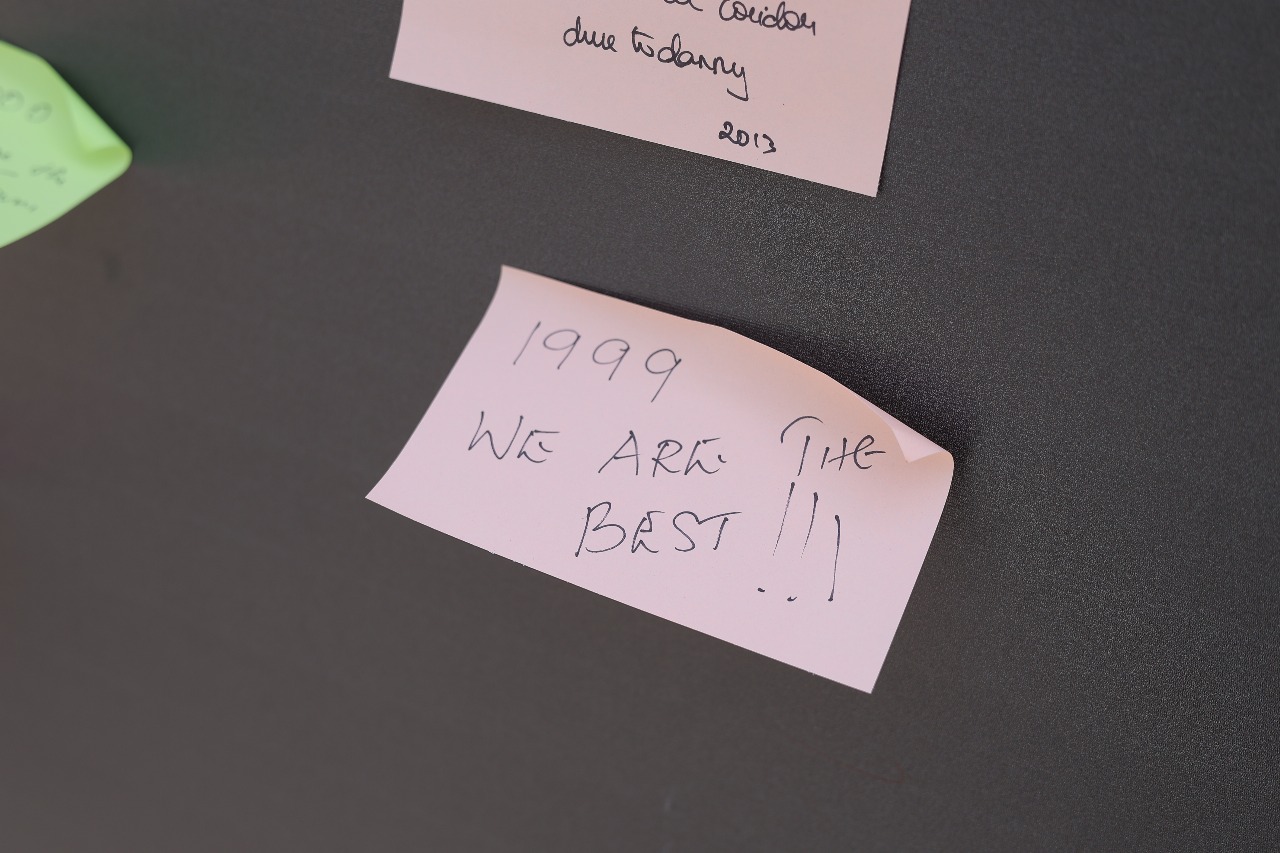 corridor
due to danny
2013
1999
WE ARE THE
BEST !!!